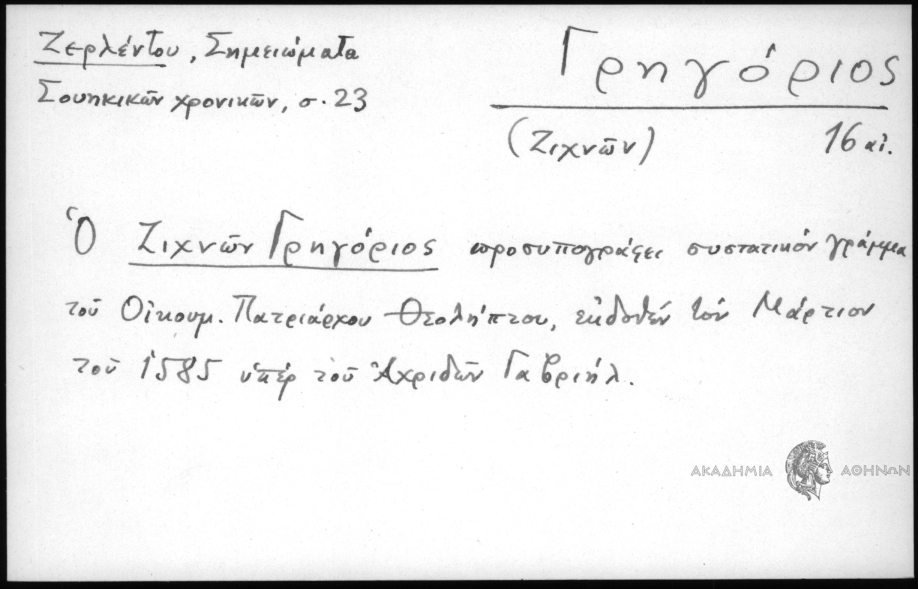 Ζερλέντου, Σημειώματα
Σουηκικῶν χρονικῶν, σ. 23
Γρηγόριος
(Ζιχνῶν) 16 αἰ.
Ὁ Ζιχνῶν Γρηγόριος προσυπογράφει συστατικόν γράμμα
τοῦ Οἰκουμ. Πατριάρχου Θεολήπτου, ἐκδοθέν τόν Μάρτιον
τοῦ 1585 ὑπέρ τοῦ Ἀχριδῶν Γαβριήλ.
ΑΚΑΔΗΜΙΑ ΑΘΗΝΩΝ